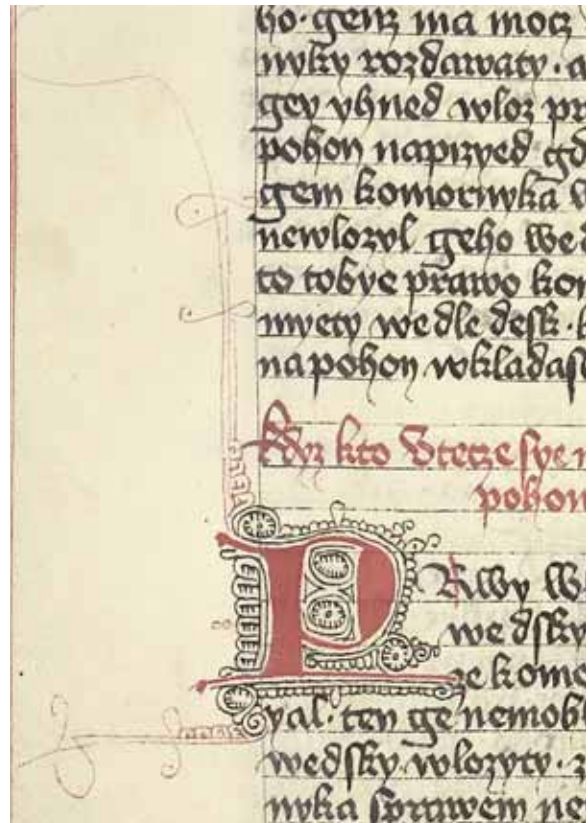 ho · genz ma mocz
nyky rozdawaty · a
gey vhned wloz pr
pohon naprzyed gd
gem komornyka w
newlozyl geho wed
to tobye prawo kom
myety wedle desk ·
na pohon wkladas
Kdyz kto Vtecze sye n
pohon
PRwy
wedsky
ze komo
yal · ten ge nemoh
wedsky wlozyty · z
nyka sprawem ne